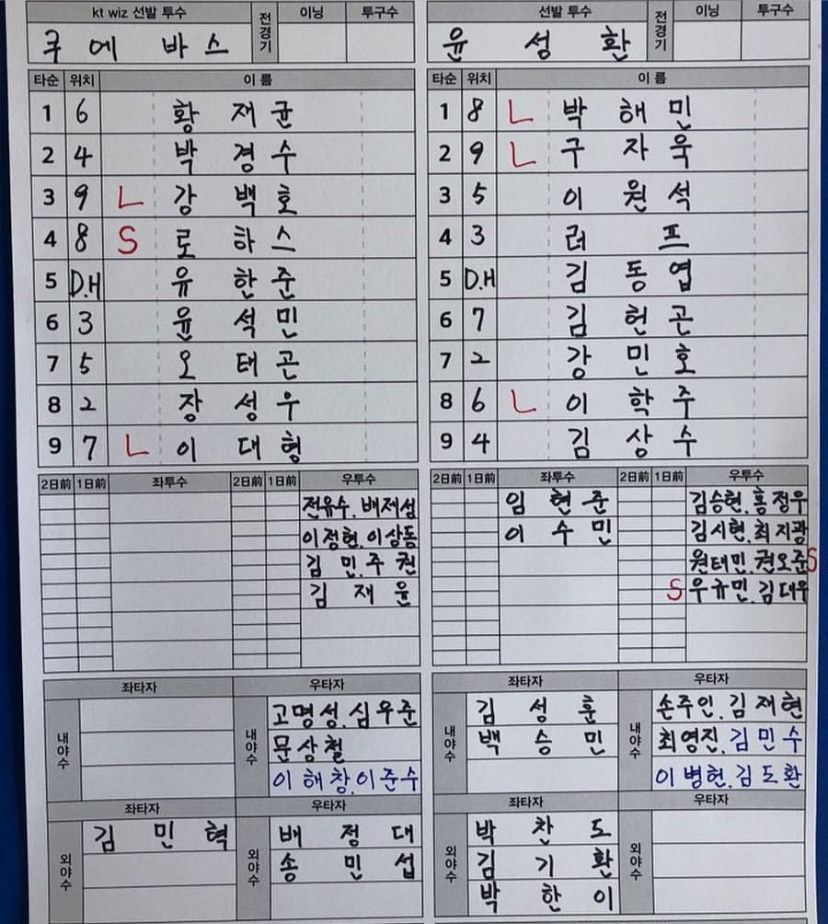 kt wiz 선발 투수 전경기 이닝 투구수
쿠에바스
타순 위치 이 름
1 6 황재균
2 4 박경수
3 9 L 강백호
4 8 S 로하스
5 D.H 유한준
6 3 윤석민
7 5 오태곤
8 2 장성우
9 7 L 이대형
2日前 1日前 좌투수 2日前 1日前 우투수
전유수. 배제성
이정현. 이상동
김민. 주권
김재윤
좌타자 우타자
내야수 내야수
고명성. 심우준
문상철
이해창. 이준수
좌타자 우타자
외야수 외야수
김민혁 배정대
송민섭
선발 투수 전경기 이닝 투구수
윤성환
타순 위치 이 름
1 8 L 박해민
2 9 L 구자욱
3 5 이원석
4 3 러프
5 D.H 김동엽
6 7 김헌곤
7 2 강민호
8 6 L 이학주
9 4 김상수
2日前 1日前 좌투수 2日前 1日前 우투수
임현준 김승현. 홍정우
이수민 김시현. 최지광
원태인. 권오준 S
S 우규민. 김대우
좌타자 우타자
내야수 내야수
김성훈 손주인. 김재현
백승민 최영진. 김민수
이병헌. 김도환
좌타자 우타자
외야수 외야수
박찬도
김기환
박한이